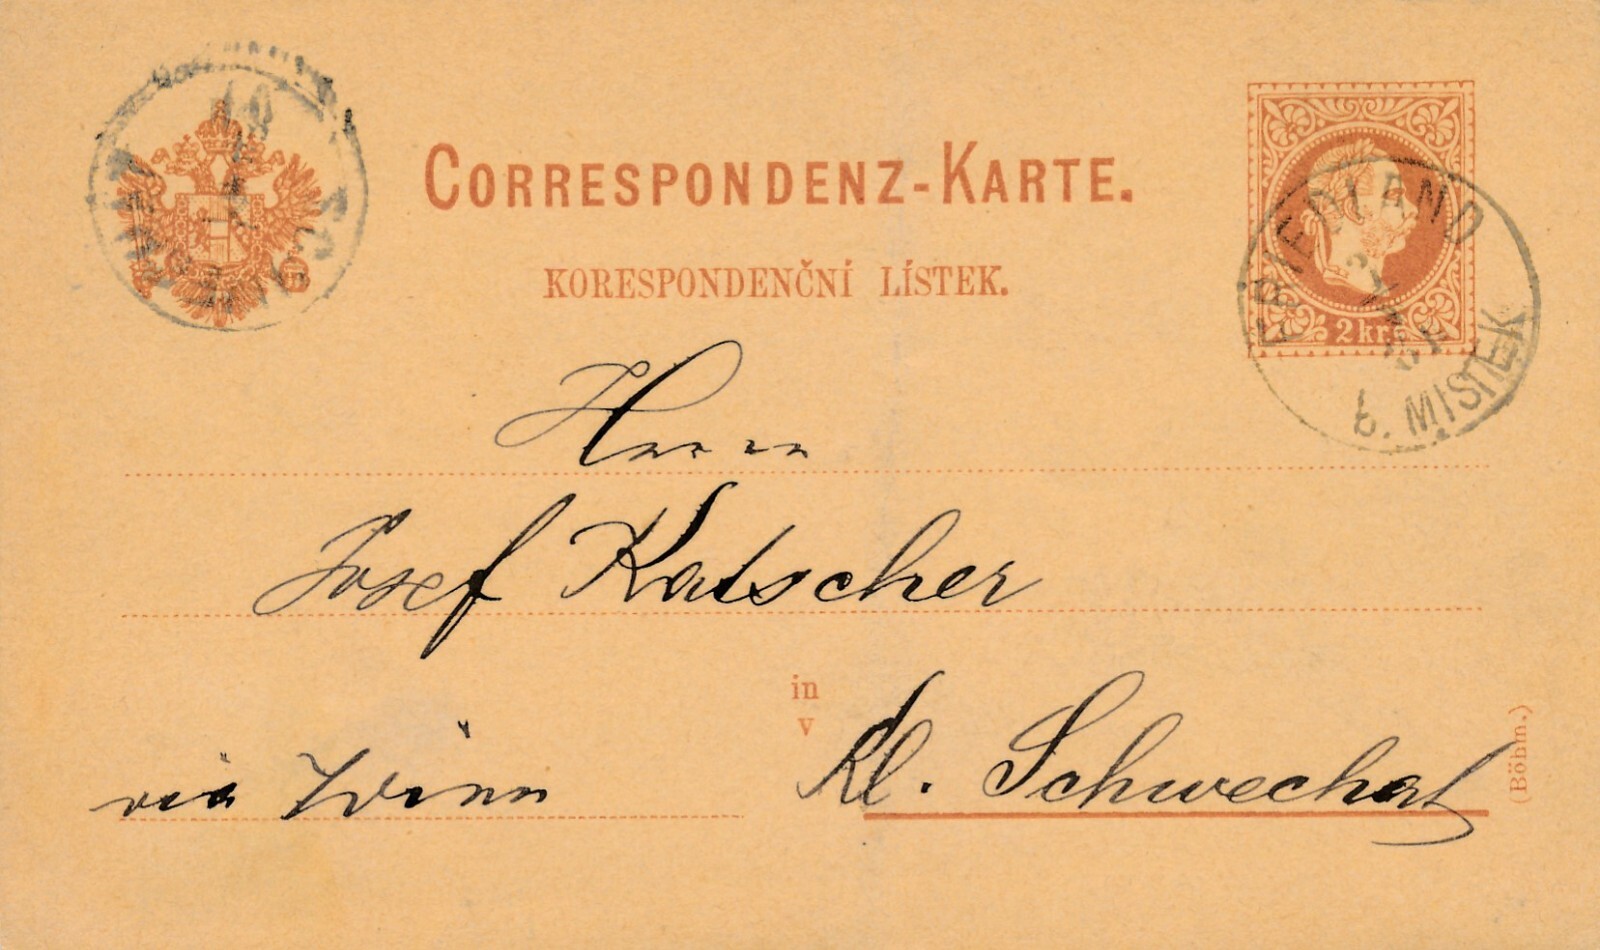 CORRESPONDENZ-KARTE.
KORESPONDENČNÍ LÍSTEK.
2 kr.
FRIEDLAND
b. MISTEK
Herrn
Josef Katscher
in
v
Kl. Schwechat
via Wien
(Böhm.)